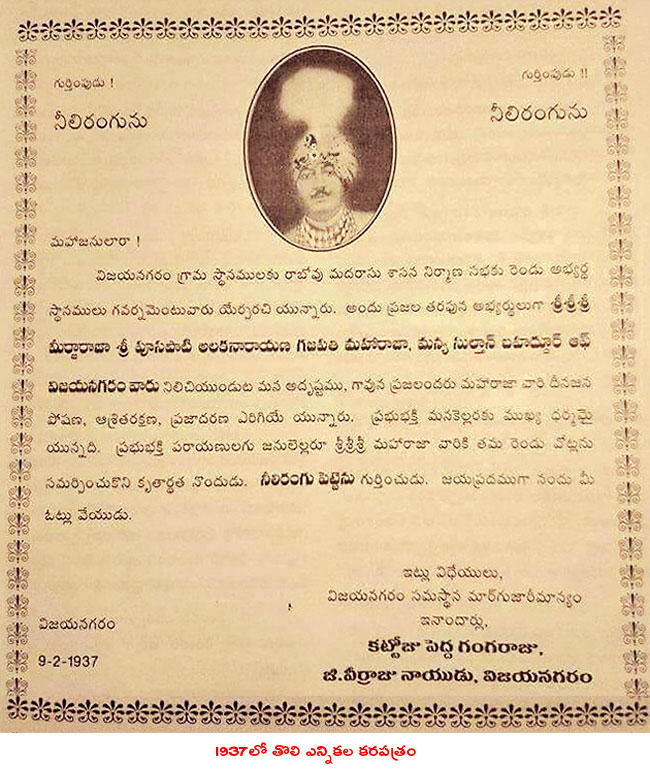 గుర్తింపుడు !
గుర్తింపుడు !!
నీలిరంగును
నీలిరంగును
మహాజనులారా !
విజయనగరం గ్రామ స్థానములకు రాబోవు మదరాసు శాసన నిర్మాణ సభకు రెండు అభ్యర్థ
స్థానములు గవర్నమెంటువారు యేర్పరచి యున్నారు. అందు ప్రజల తరఫున అభ్యర్థులుగా శ్రీశ్రీశ్రీ
మీర్జారాజా శ్రీ పూసపాటి అలకనారాయణ గజపతి మహారాజా, మన్య సుల్తాన్ బహద్దూర్ ఆఫ్
విజయనగరం వారు నిలిచియుండుట మన అదృష్టము, గావున ప్రజలందరు మహారాజా వారి దీనజన
పోషణ, ఆశ్రితరక్షణ, ప్రజాదరణ ఎరిగియే యున్నారు. ప్రభుభక్తి మనకెల్లరకు ముఖ్య ధర్మమై
యున్నది. ప్రభుభక్తి పరాయణులగు జనులెల్లరూ శ్రీశ్రీశ్రీ మహారాజా వారికి తమ రెండు వోట్లను
సమర్పించుకొని కృతార్థత నొందుడు. నీలిరంగు పెట్టెను గుర్తించుడు. జయప్రదముగా నందు మీ
ఓట్లు వేయుడు.
ఇట్లు విధేయులు,
విజయనగరం సమస్థాన మార్‌గుజారీమాన్యం
ఇనాందార్లు,
విజయనగరం
కట్టోజు పెద్ద గంగరాజు,
9-2-1937
జి.వీర్రాజు నాయుడు, విజయనగరం
1937లో తొలి ఎన్నికల కరపత్రం